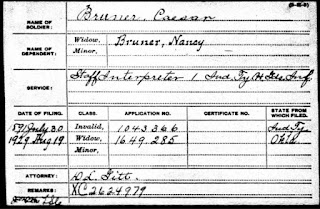 NAME OF SOLDIER: Bruner, Caesar
NAME OF DEPENDENT: Widow, Bruner, Nancy
Minor,
SERVICE: Staff Interpreter 1 Ind. Ty. H. Gds. Inf.
DATE OF FILING. CLASS. APPLICATION NO. CERTIFICATE NO. STATE FROM WHICH FILED.
1891 July 30 Invalid, 1043366 Ind. Ty.
1929 Aug 19 Widow, 1649,285 Okla.
Minor,
ATTORNEY: D.L. Gitt.
REMARKS: XC2624979